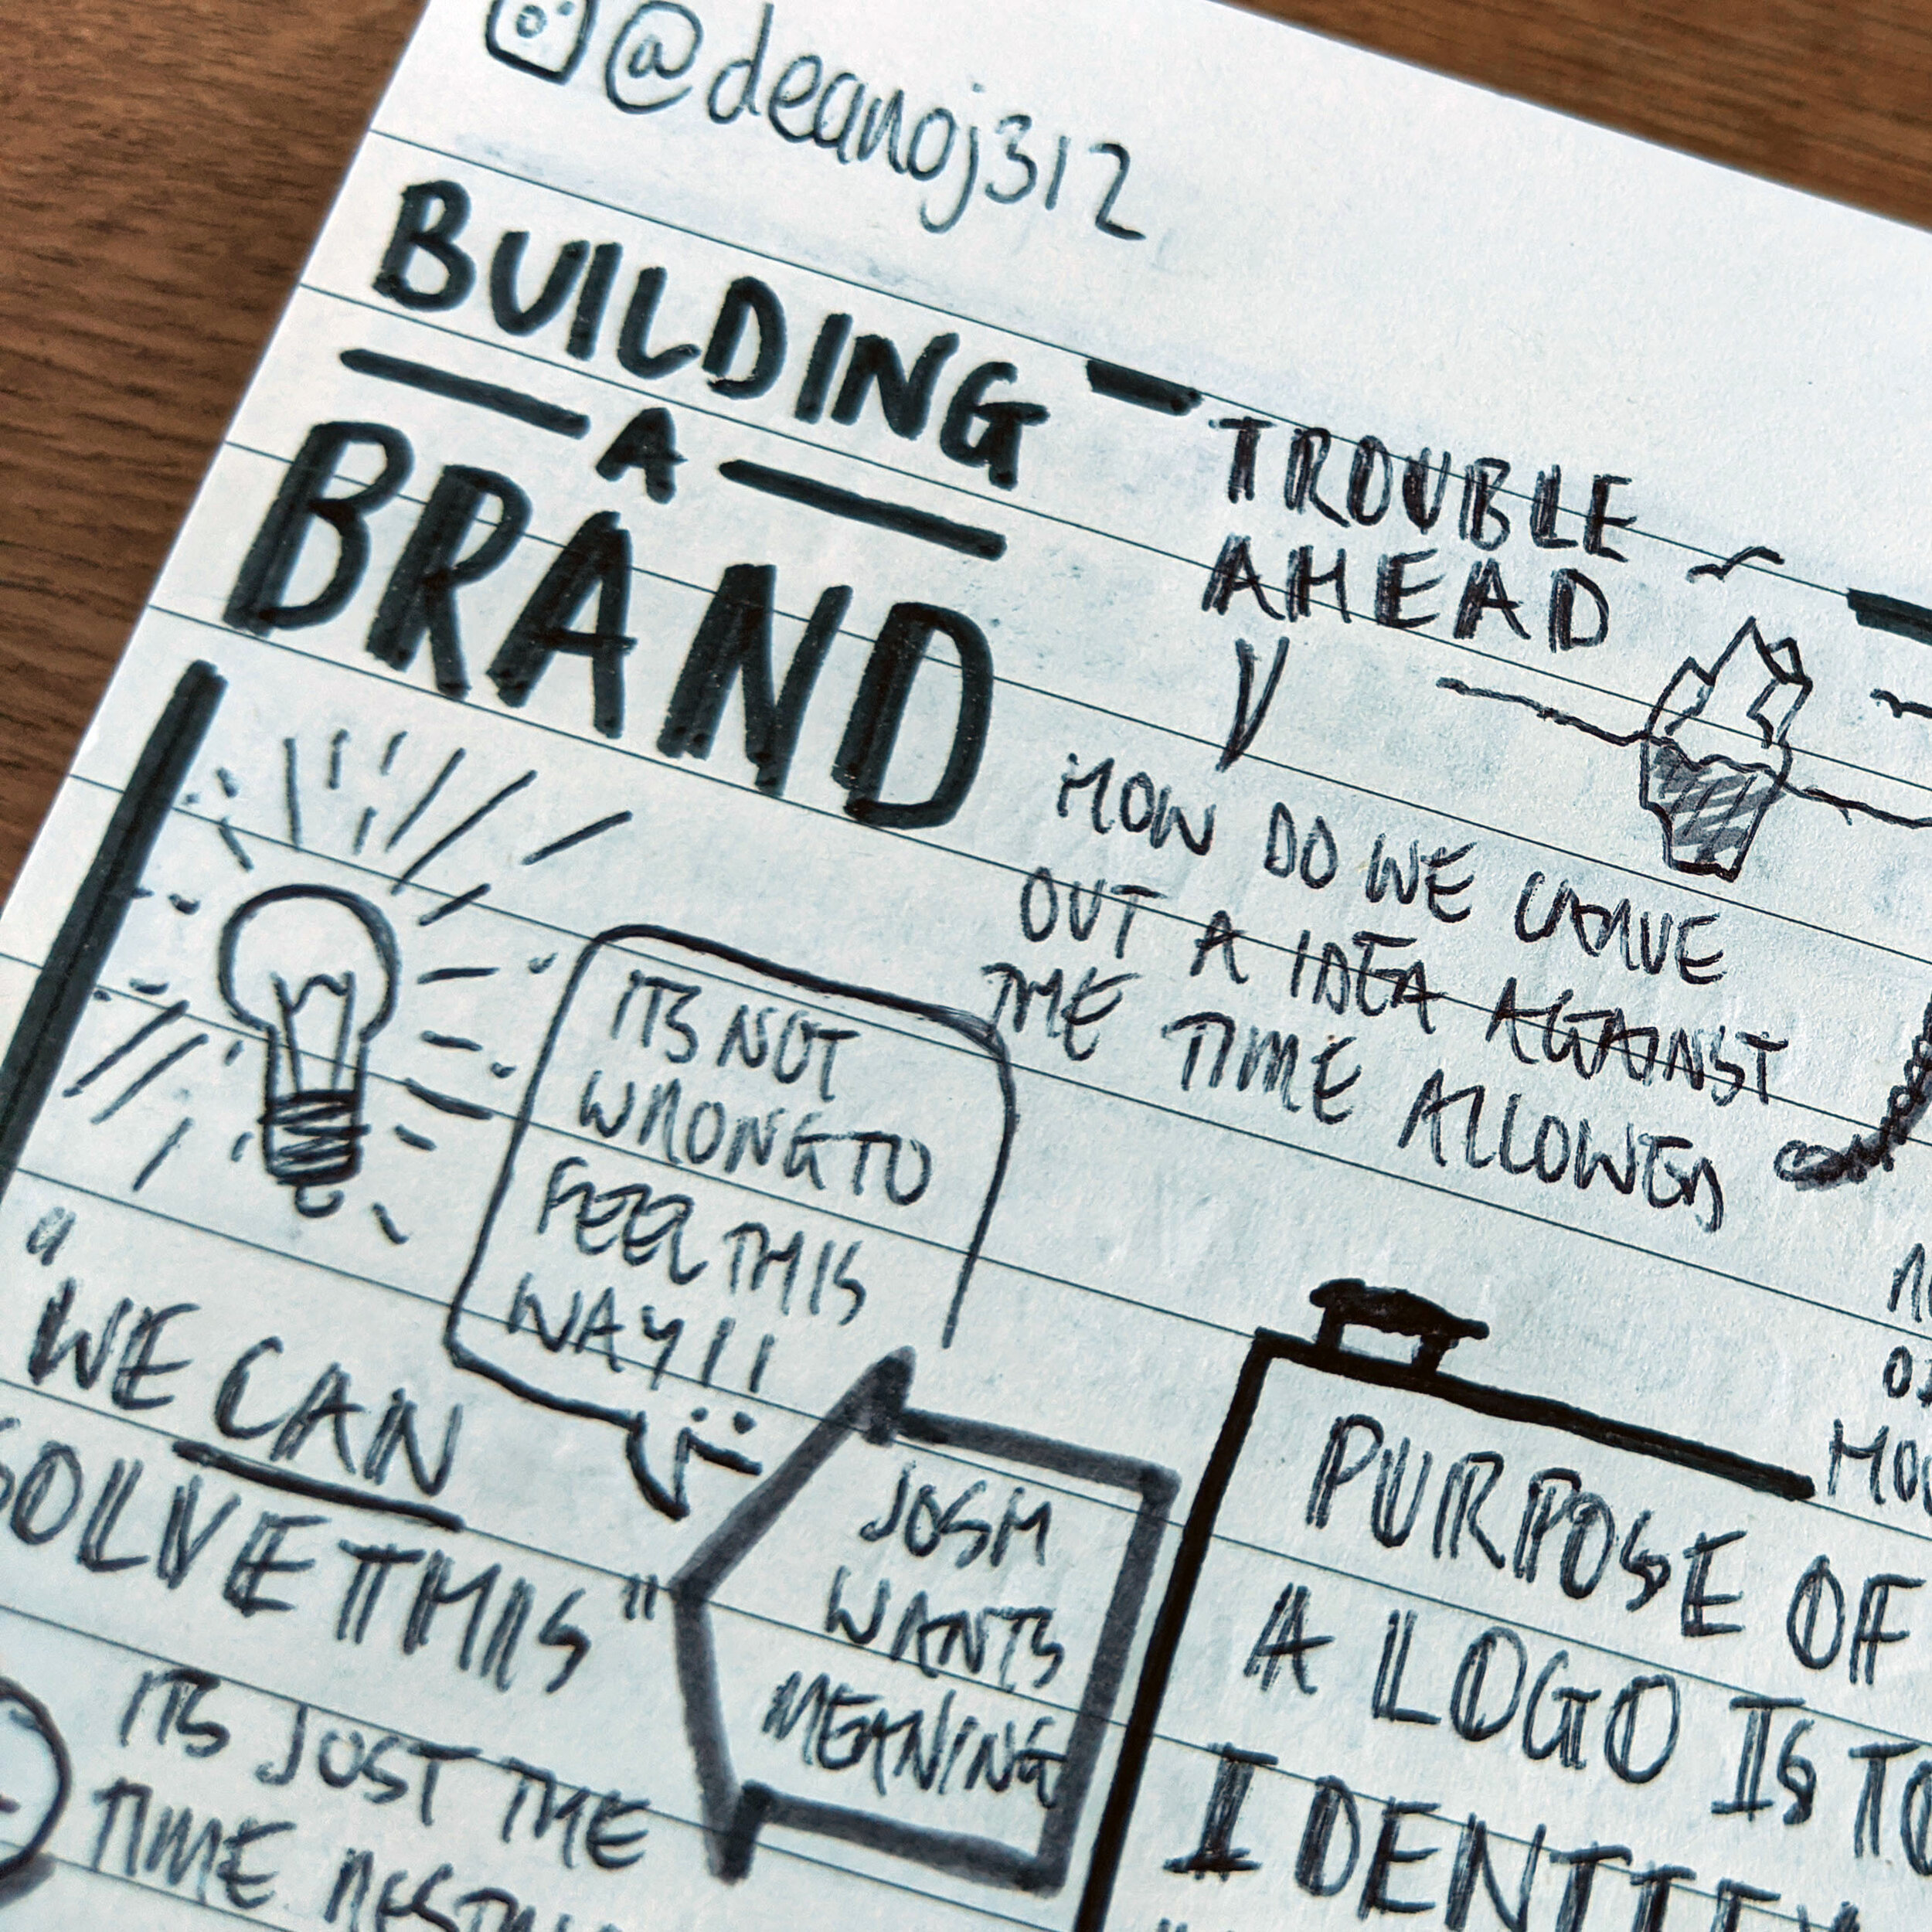 @deanoj312
BUILDING
A
BRAND
TROUBLE
AHEAD
HOW DO WE CARVE
OUT A IDEA AGAINST
THE TIME ALLOWED
ITS NOT
WRONG TO
FEEL THIS
WAY!!
"WE CAN
SOLVE THIS"
JOSH
WANTS
MEANING
ITS JUST THE
TIME
PURPOSE OF
A LOGO IS TO
IDENTIFY